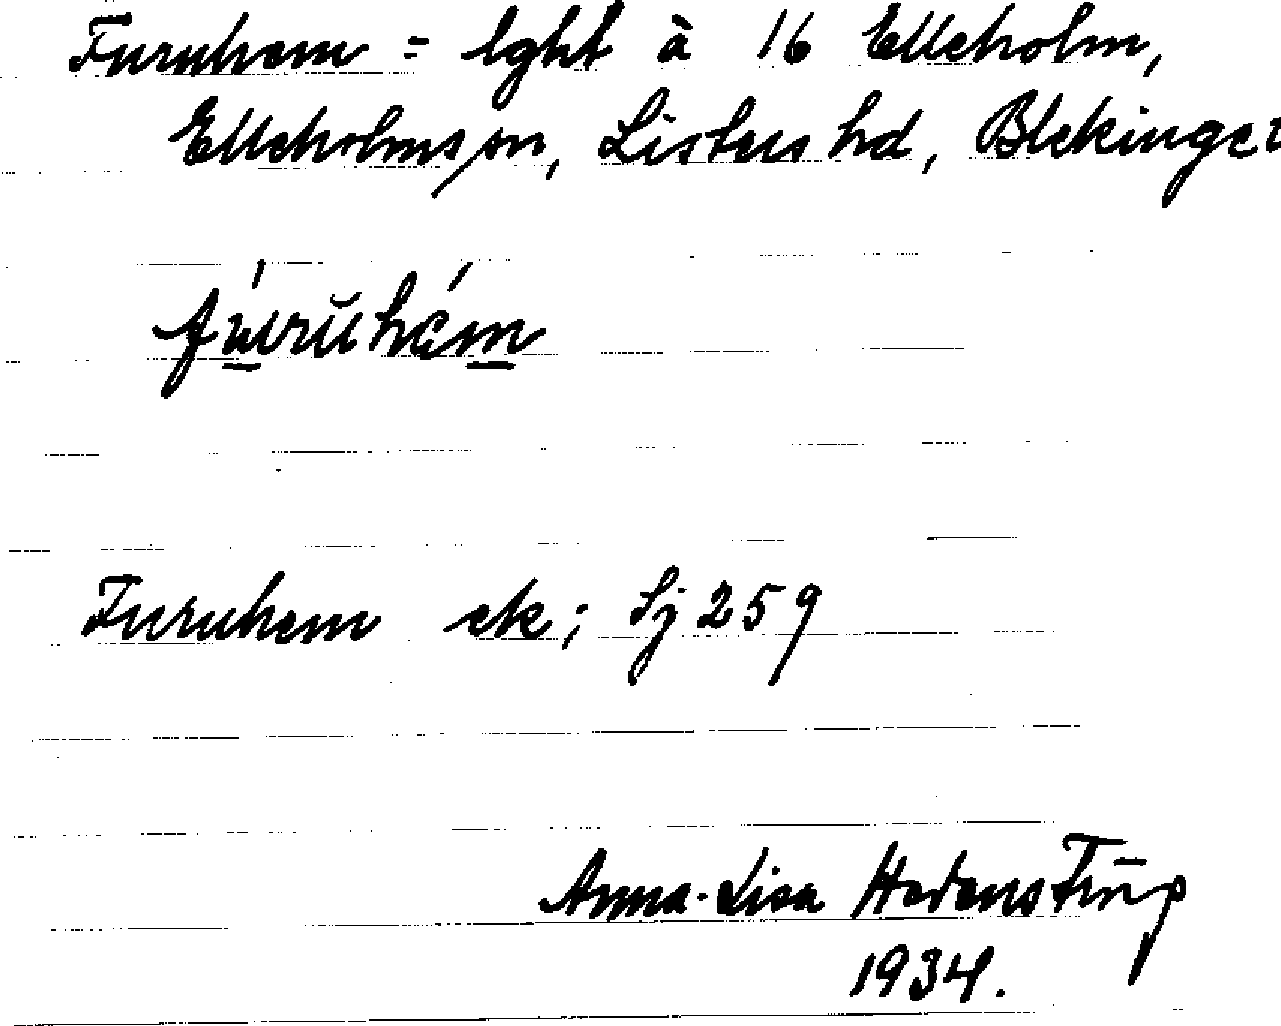 Furuhem = lght à 16 Elleholm,
Elleholms sn, Listers hd, Blekinge
fúrŭhém
Furuhem ek; Sj 259
Anna-Lisa
1934.